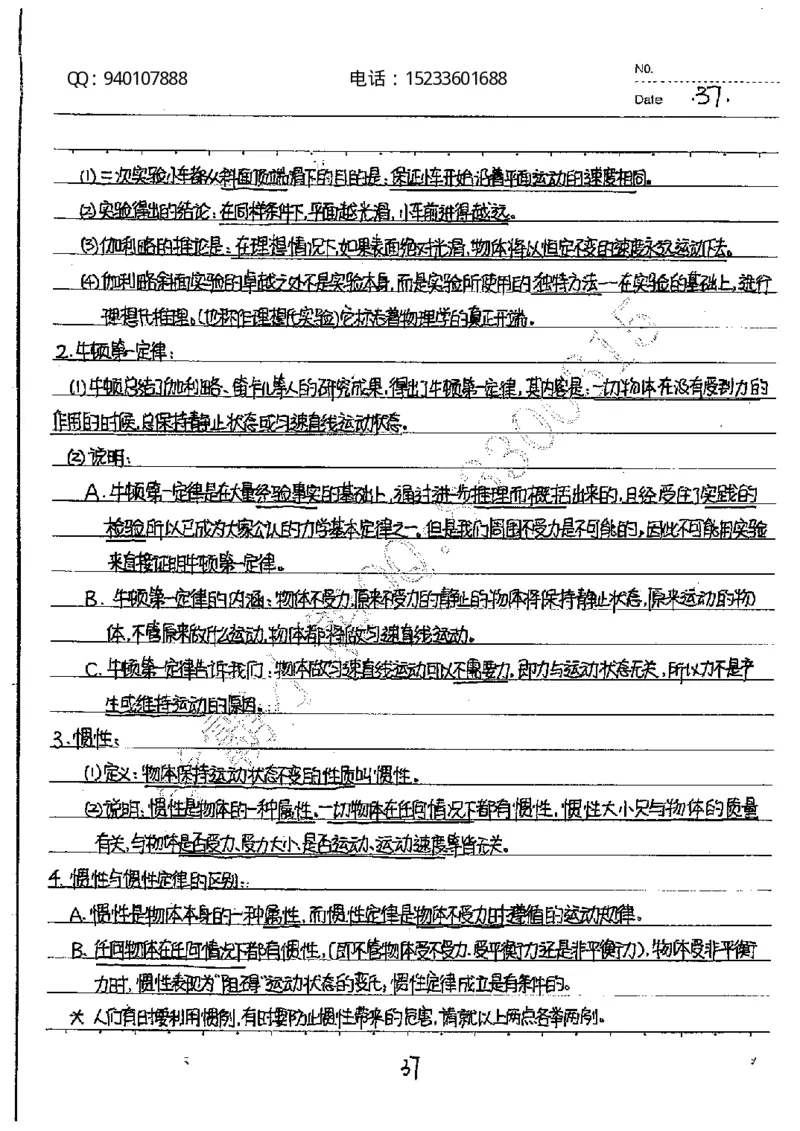 QQ：940107888 电话：15233601688 NO.
Date .37.
(1)三次实验小车都从斜面顶端滑下的目的是：保证小车开始沿着平面运动的速度相同。
(2)实验得出的结论：在同样条件下，平面越光滑，小车前进得越远。
(3)伽利略的推论是：在理想情况下，如果表面绝对光滑，物体将以恒定不变的速度永远运动下去。
(4)伽利略斜面实验的卓越之处不是实验本身，而是实验所使用的独特方法——在实验的基础上，进行
理想化推理。(也称作理想化实验)它标志着物理学的真正开端。
2.牛顿第一定律：
(1)牛顿总结了伽利略、笛卡儿等人的研究成果，得出了牛顿第一定律，其内容是：一切物体在没有受到力的
作用的时候，总保持静止状态或匀速直线运动状态。
(2)说明：
A.牛顿第一定律是在大量经验事实的基础上，通过进一步推理而概括出来的，且经受住了实践的
检验所以已成为大家公认的力学基本定律之一。但是我们周围不受力是不可能的，因此不可能用实验
来直接证明牛顿第一定律。
B.牛顿第一定律的内涵：物体不受力，原来不受力的静止的物体将保持静止状态，原来运动的物
体，不管原来做什么运动，物体都将做匀速直线运动。
C.牛顿第一定律告诉我们：物体做匀速直线运动可以不需要力，即力与运动状态无关，所以力不是产
生或维持运动的原因。
3.惯性：
(1)定义：物体保持运动状态不变的性质叫惯性。
(2)说明：惯性是物体的一种属性。一切物体在任何情况下都有惯性，惯性大小只与物体的质量
有关，与物体是否受力、受力大小、是否运动、运动速度等皆无关。
4.惯性与惯性定律的区别：
A.惯性是物体本身的一种属性，而惯性定律是物体不受力时遵循的运动规律。
B.任何物体在任何情况下都有惯性，(即不管物体受不受力、受平衡力还是非平衡力)，物体受非平衡
力时，惯性表现为“阻碍”运动状态的变化；惯性定律成立是有条件的。
* 人们有时要利用惯例，有时要防止惯性带来的危害，请就以上两点各举两例。
37